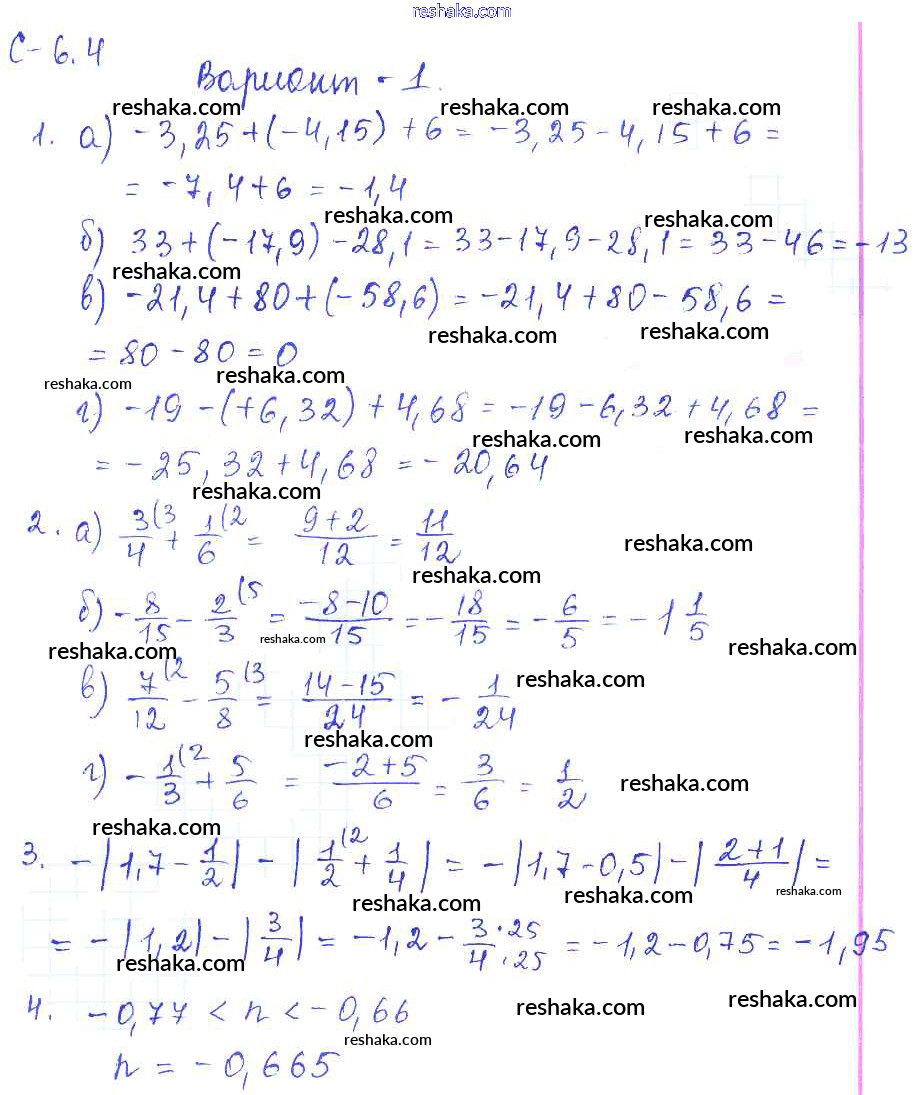 reshaka.com
С-6.4
Вариант - 1.
reshaka.com reshaka.com reshaka.com
1. а) -3,25+(-4,15)+6 = -3,25-4,15+6 =
= -7,4+6 = -1,4
reshaka.com reshaka.com
б) 33+(-17,9)-28,1 = 33-17,9-28,1 = 33-46 = -13
reshaka.com
в) -21,4+80+(-58,6) = -21,4+80-58,6 =
reshaka.com reshaka.com
= 80-80 = 0
reshaka.com reshaka.com
г) -19-(+6,32)+4,68 = -19-6,32+4,68 =
reshaka.com reshaka.com
= -25,32+4,68 = -20,64
reshaka.com
2. а) 3/4 (3 + 1/6 (2 = 9+2/12 = 11/12
reshaka.com
reshaka.com
б) -8/15 - 2/3 (5 = -8-10/15 = -18/15 = -6/5 = -1 1/5
reshaka.com reshaka.com reshaka.com
в) 7/12 (2 - 5/8 (3 = 14-15/24 = -1/24
reshaka.com
reshaka.com
г) -1/3 (2 + 5/6 = -2+5/6 = 3/6 = 1/2
reshaka.com
reshaka.com
3. -|1,7-1/2| - |1/2 (2 + 1/4| = -|1,7-0,5| - |2+1/4| =
reshaka.com reshaka.com reshaka.com
= -|1,2| - |3/4| = -1,2 - 3·25/4·25 = -1,2-0,75 = -1,95
reshaka.com
4. -0,77 < n < -0,66
reshaka.com reshaka.com
reshaka.com
n = -0,665